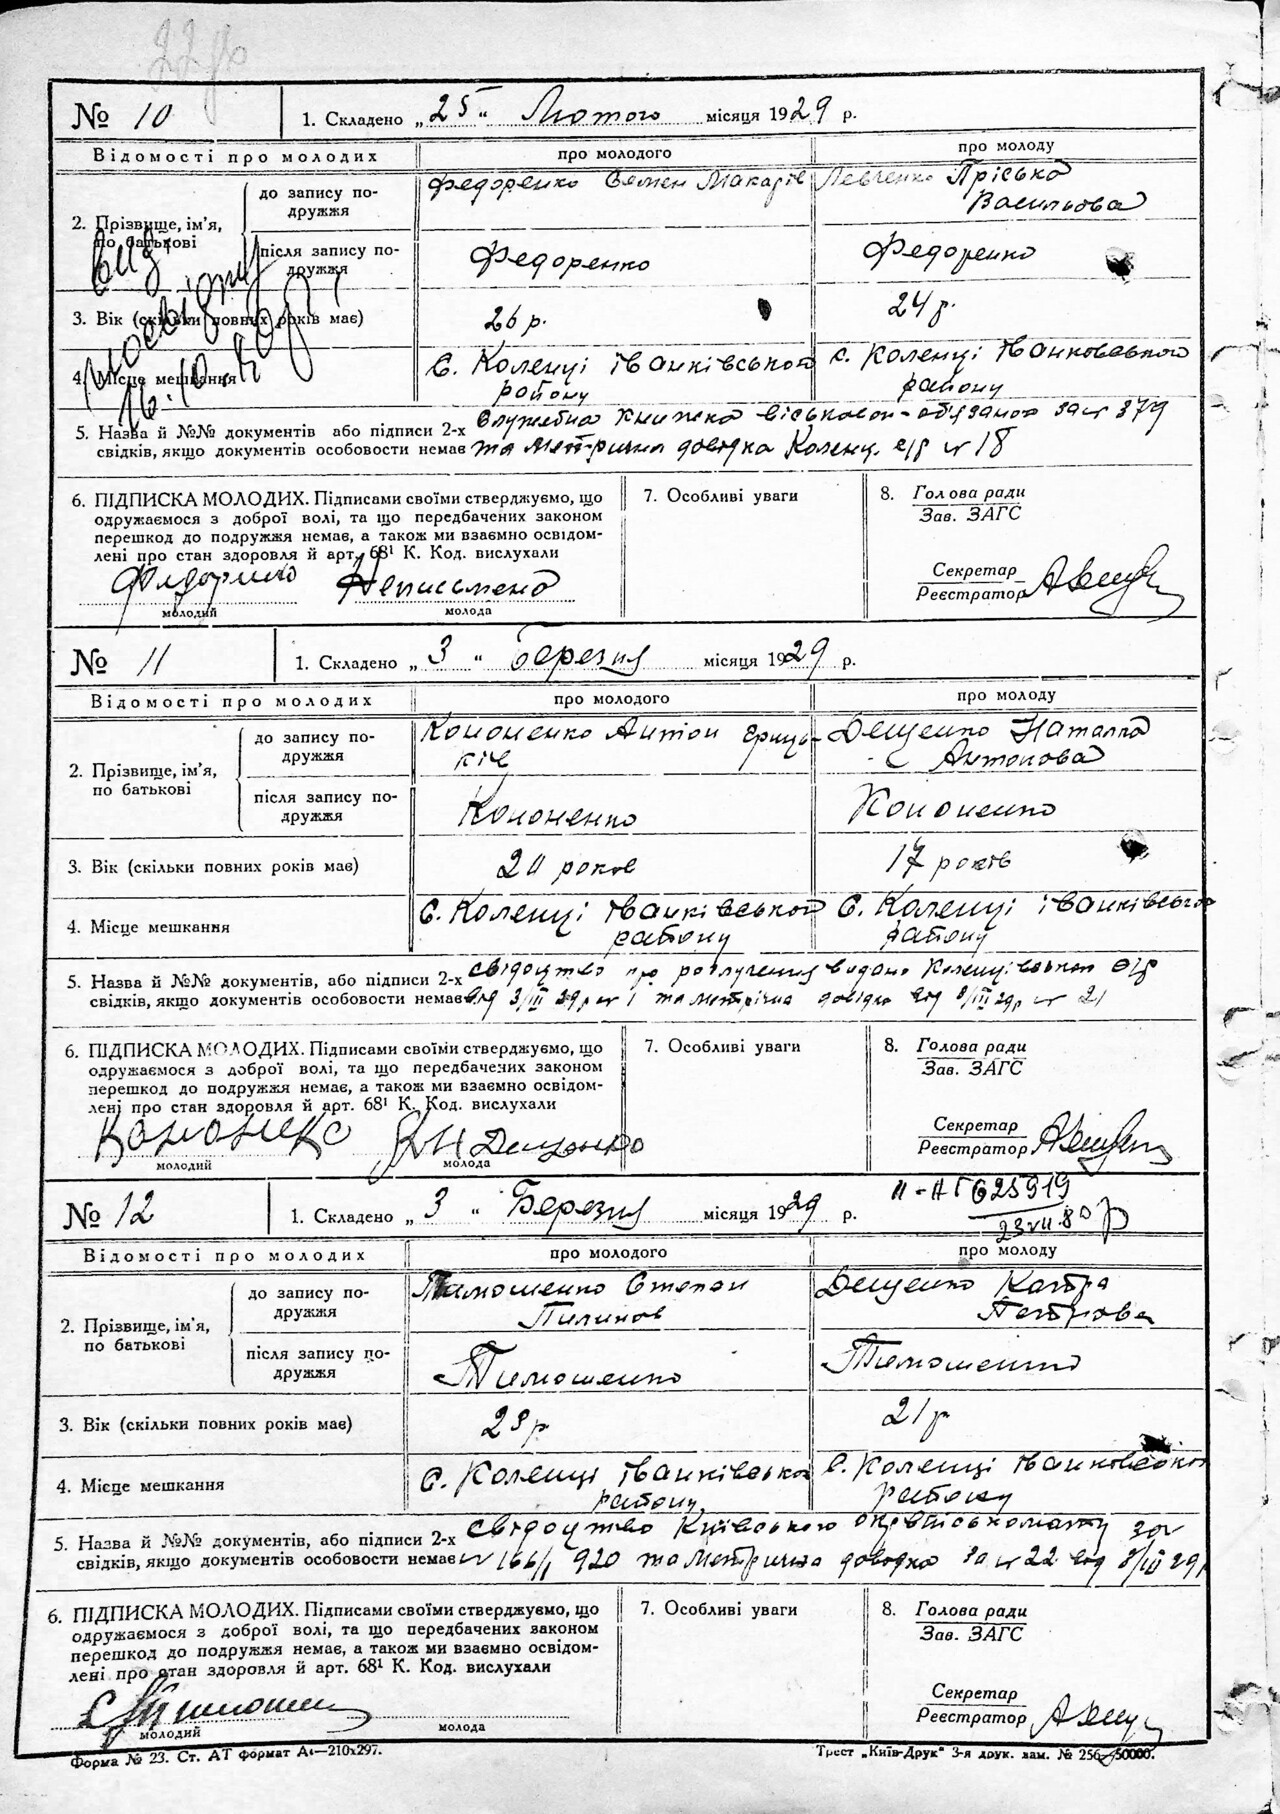 № 10
1. Складено „25“ Лютого місяця 1929 р.
Відомості про молодих
про молодого
про молоду
2. Прізвище, ім'я, по батькові
до запису подружжя
Федоренко Семен Макарів
Левченко Пріська
Васильова
після запису подружжя
Федоренко
Федоренко
3. Вік (скільки повних років має)
26 р.
24 р.
4. Місце мешкання
с. Коленці Іванківського
району
с. Коленці Іванковського
району
16.10.
5. Назва й №№ документів або підписи 2-х
свідків, якщо документів особовости немає
Служебна книжка військово-обязаного за № 379
та метрична довідка Коленц. с/р № 18
6. ПІДПИСКА МОЛОДИХ. Підписами своїми стверджуємо, що
одружаємося з доброї волі, та що передбачених законом
перешкод до подружжя немає, а також ми взаємно освідом-
лені про стан здоровля й арт. 68¹ К. Код. вислухали
Неписьмена
молодий
молода
7. Особливі уваги
8. Голова ради
Зав. ЗАГС
Секретар
Реєстратор
№ 11
1. Складено „3“ Березня місяця 1929 р.
Відомості про молодих
про молодого
про молоду
2. Прізвище, ім'я,
по батькові
до запису по-
дружжя
Кононенко Антон Гриць-
ків
Дещенко Наталка
Антонова
після запису по-
дружжя
Кононенко
Кононенко
3. Вік (скільки повних років має)
років
17 років
4. Місце мешкання
с. Коленці Іванківського
району
с. Коленці Іванківського
району
5. Назва й №№ документів, або підписи 2-х
свідків, якщо документів особовости немає
свідоцтво про розлучення видано Коленцівською с/р
від 3/III 29р № 1 та метрична довідка від 3/III 29р № 21
6. ПІДПИСКА МОЛОДИХ. Підписами своїми стверджуємо, що
одружаємося з доброї волі, та що передбачених законом
перешкод до подружжя немає, а також ми взаємно освідом-
лені про стан здоровля й арт. 68¹ К. Код. вислухали
Дещенко
молодий
молода
7. Особливі уваги
8. Голова ради
Зав. ЗАГС
Секретар
Реєстратор
№ 12
1. Складено „3“ Березня місяця 1929 р.
625919
Відомості про молодих
про молодого
про молоду
2. Прізвище, ім'я,
по батькові
до запису по-
дружжя
Тимошенко Степан
Пилипов
Дещенко Катря
Петрова
після запису по-
дружжя
Тимошенко
Тимошенко
3. Вік (скільки повних років має)
23 р
21 р
4. Місце мешкання
с. Коленці Іванківського
району
с. Коленці Іванковського
району
5. Назва й №№ документів, або підписи 2-х
свідків, якщо документів особовости немає
свідоцтво Київського за
№ 166/1 920 та метрична довідка за № 22 від 3/III 29р
6. ПІДПИСКА МОЛОДИХ. Підписами своїми стверджуємо, що
одружаємося з доброї волі, та що передбачених законом
перешкод до подружжя немає, а також ми взаємно освідом-
лені про стан здоровля й арт. 68¹ К. Код. вислухали
молодий
молода
7. Особливі уваги
8. Голова ради
Зав. ЗАГС
Секретар
Реєстратор
Форма № 23. Ст. АТ формат А4—210х297.
Трест „Київ-Друк“ 3-я друк. зам. № 256—50000.